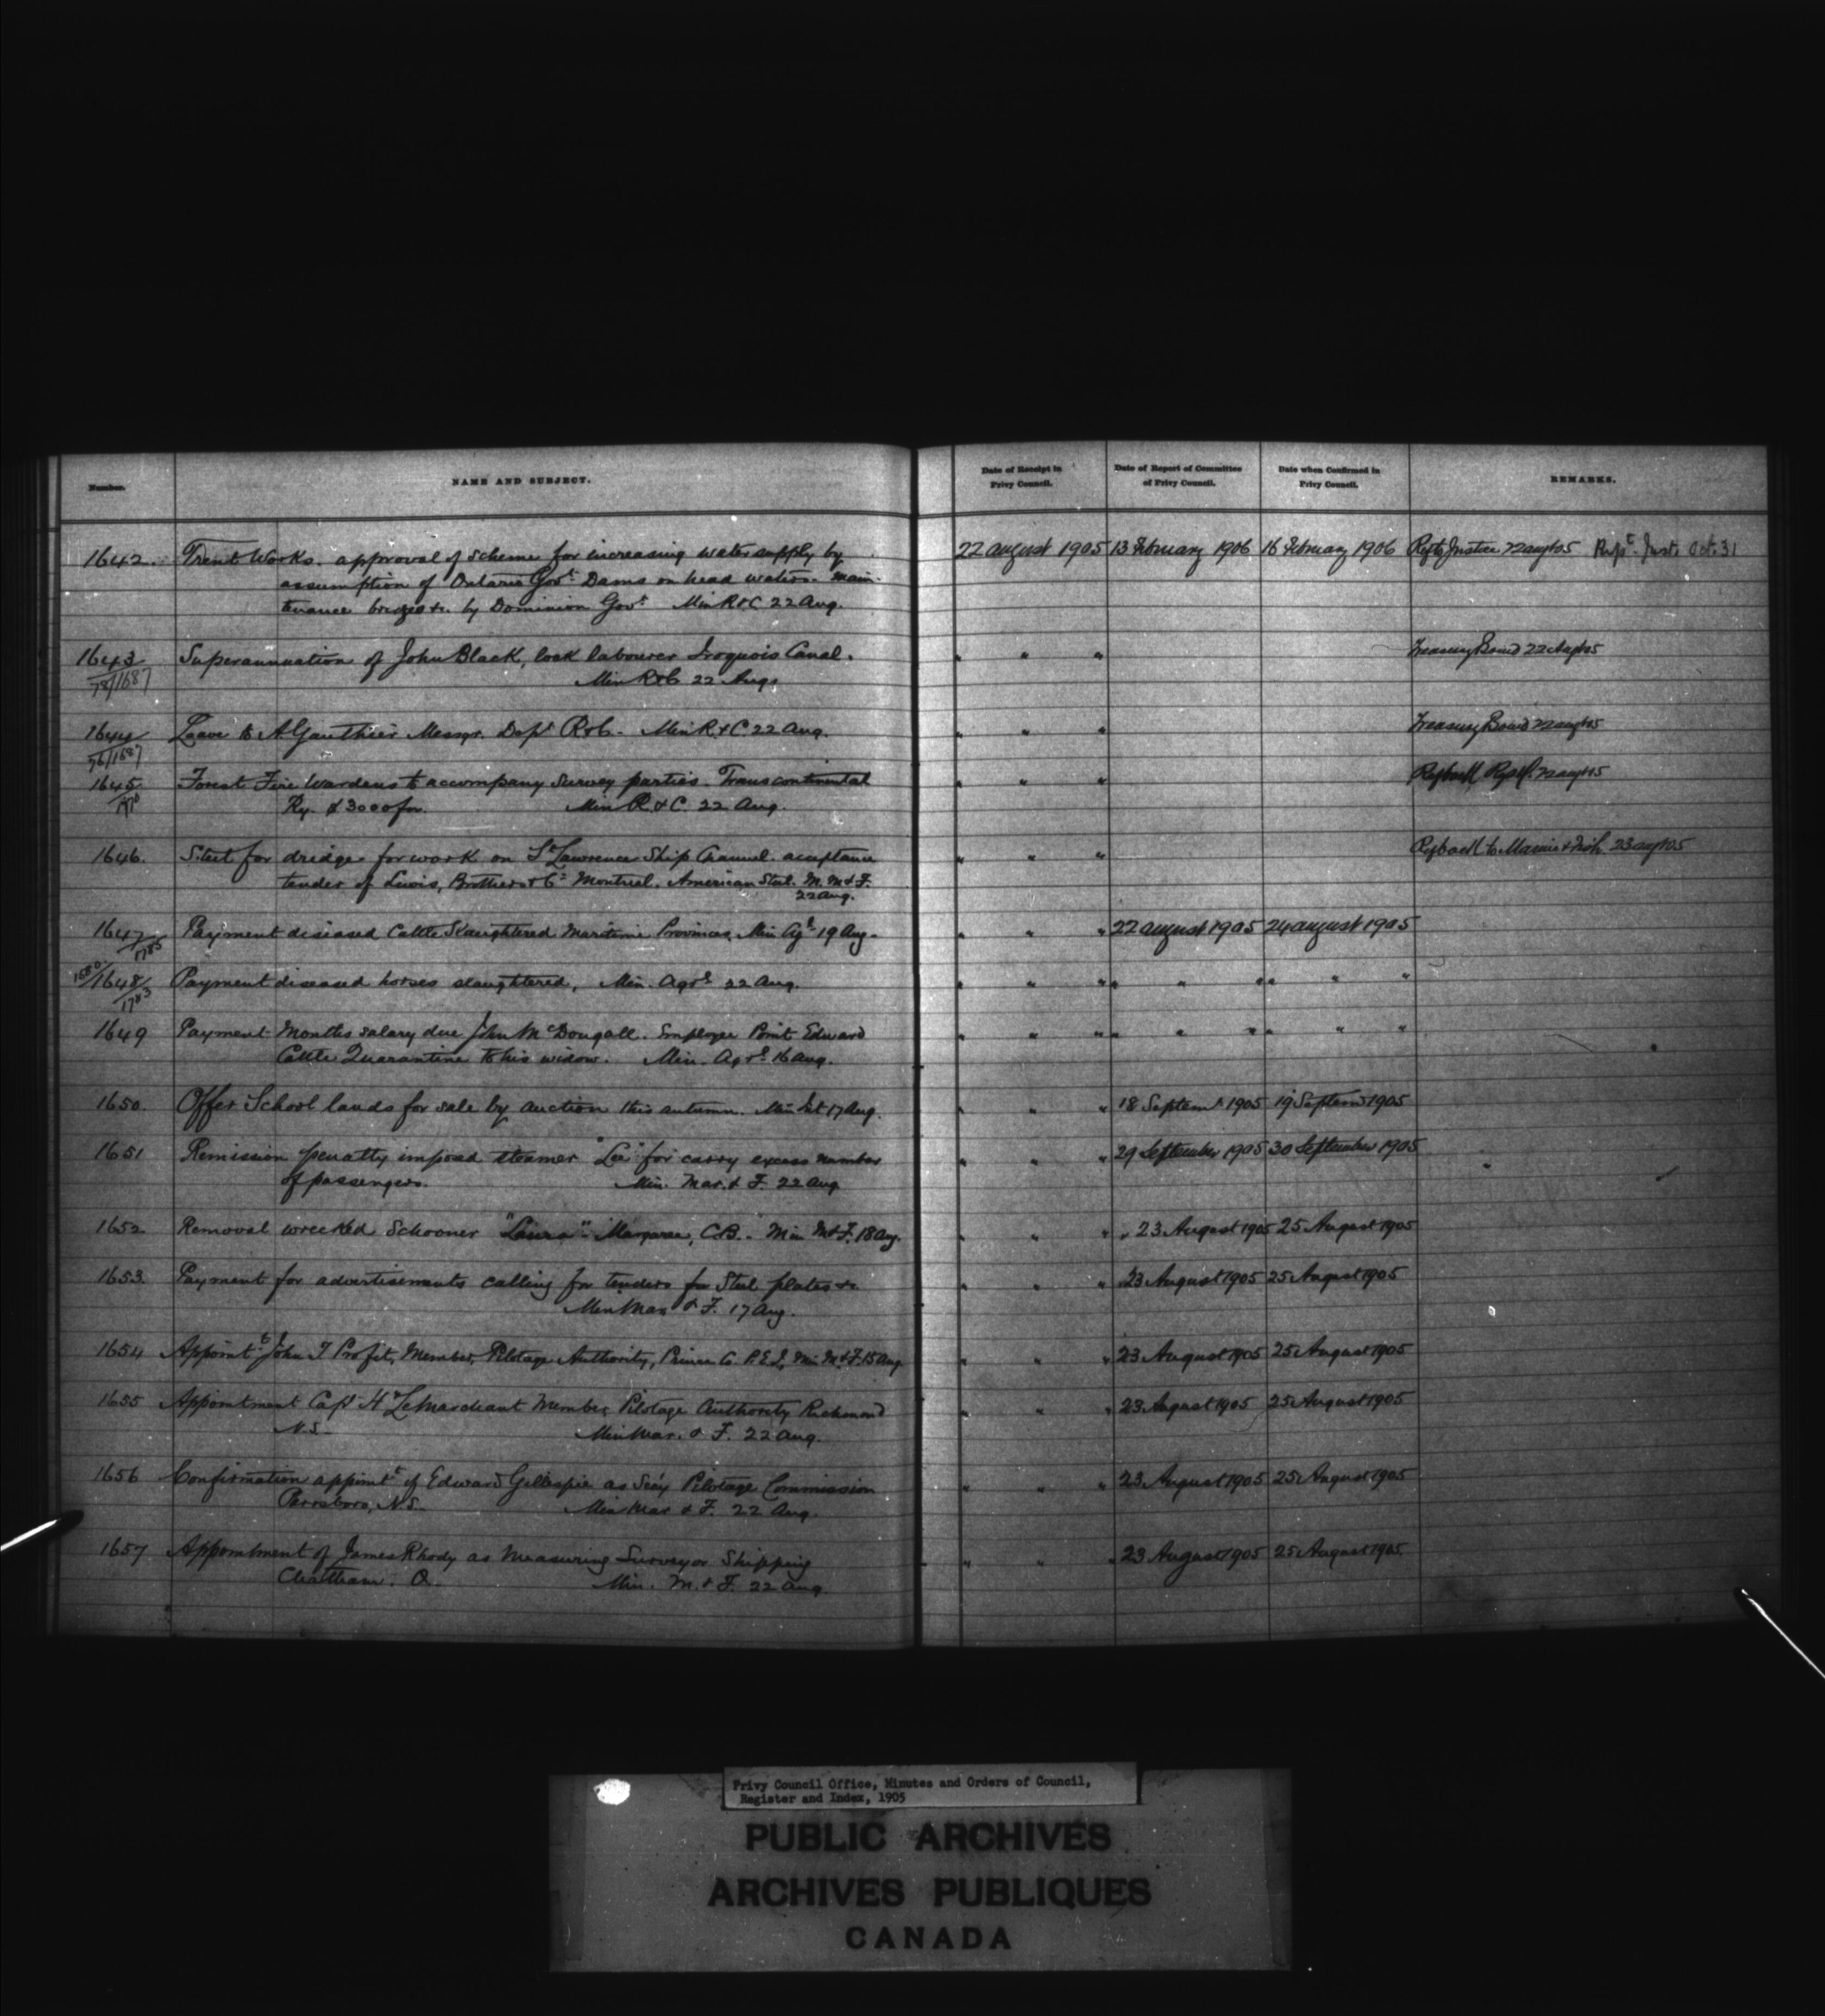 Number. NAME AND SUBJECT. Date of Receipt in Privy Council. Date of Report of Committee of Privy Council. Date when Confirmed in Privy Council. REMARKS.
1642. Trent Works. approval of scheme for increasing water supply by 22 August 1905 13 February 1906 16 February 1906 Justice 22 Aug 05 Oct. 31
assumption of Ontario Govt. Dams on head waters. main-
tenance by Dominion Govt. Min R & C 22 Aug.
1643 Superannuation of John Black, lock labourer Iroquois Canal. " " " Treasury Board 22 Aug 05
78/1687 Min R & C 22 Aug.
1644 Leave to A Gauthier Messgr. Dept R & C. Min R. & C 22 Aug. " " " Treasury Board 22 Aug 05
/1687
1645 Forest Fire Wardens to accompany Survey parties. Transcontinental " " " 22 Aug 05
Ry. $3000 for Min R. & C. 22 Aug.
1646. Steel for dredge for work on St Lawrence Ship Channel. acceptance " " " to Marine & Fish. 23 Aug 05
tender of Lewis, Brothers & Co Montreal. American Steel. M. M & F.
22 Aug.
1647 Payment diseased Cattle Slaughtered Maritime Provinces. Min Agr 19 Aug. " " " 22 August 1905 24 August 1905
1785
1648 Payment diseased horses slaughtered, Min. Agre 22 Aug. " " " " " " " " "
1783
1649 Payment Months salary due John McDougall. Employee Point Edward " " " " " " " " "
Cattle Quarantine to his widow. Min. Agre 16 Aug.
1650. Offer School lands for sale by auction this autumn. Min Int 17 Aug. " " " 18 Septem 1905 19 Septem 1905
1651 Remission penalty imposed steamer "Lee" for carry excess number " " " 29 September 1905 30 September 1905
of passengers. Min. Mar. & F. 22 Aug
1652 Removal wrecked Schooner "Laura" Margaree, C.B. Min M & F. 18 Aug. " " " 23 August 1905 25 August 1905
1653. Payment for advertisements calling for tenders for Steel plates &c. " " " 23 August 1905 25 August 1905
Min Mar & F. 17 Aug.
1654 Appointt John T Profit, Member, Pilotage Authority, Prince Co. P.E.I, Min M & F. 15 Aug " " " 23 August 1905 25 August 1905
1655 Appointment Capt H LeMarchant Member Pilotage Authority Richmond " " " 23 August 1905 25 August 1905
N.S. Min Mar. & F. 22 Aug.
1656 Confirmation appointt of Edward Gillespie as Secy Pilotage Commission " " " 23 August 1905 25 August 1905
Parrsboro, N.S. Min Mar & F. 22 Aug.
1657 Appointment of James Rhody as Measuring Surveyor Shipping " " " 23 August 1905 25 August 1905.
Chatham. O. Min. M. & F. 22 Aug.
Privy Council Office, Minutes and Orders of Council,
Register and Index, 1905
PUBLIC ARCHIVES
ARCHIVES PUBLIQUES
CANADA